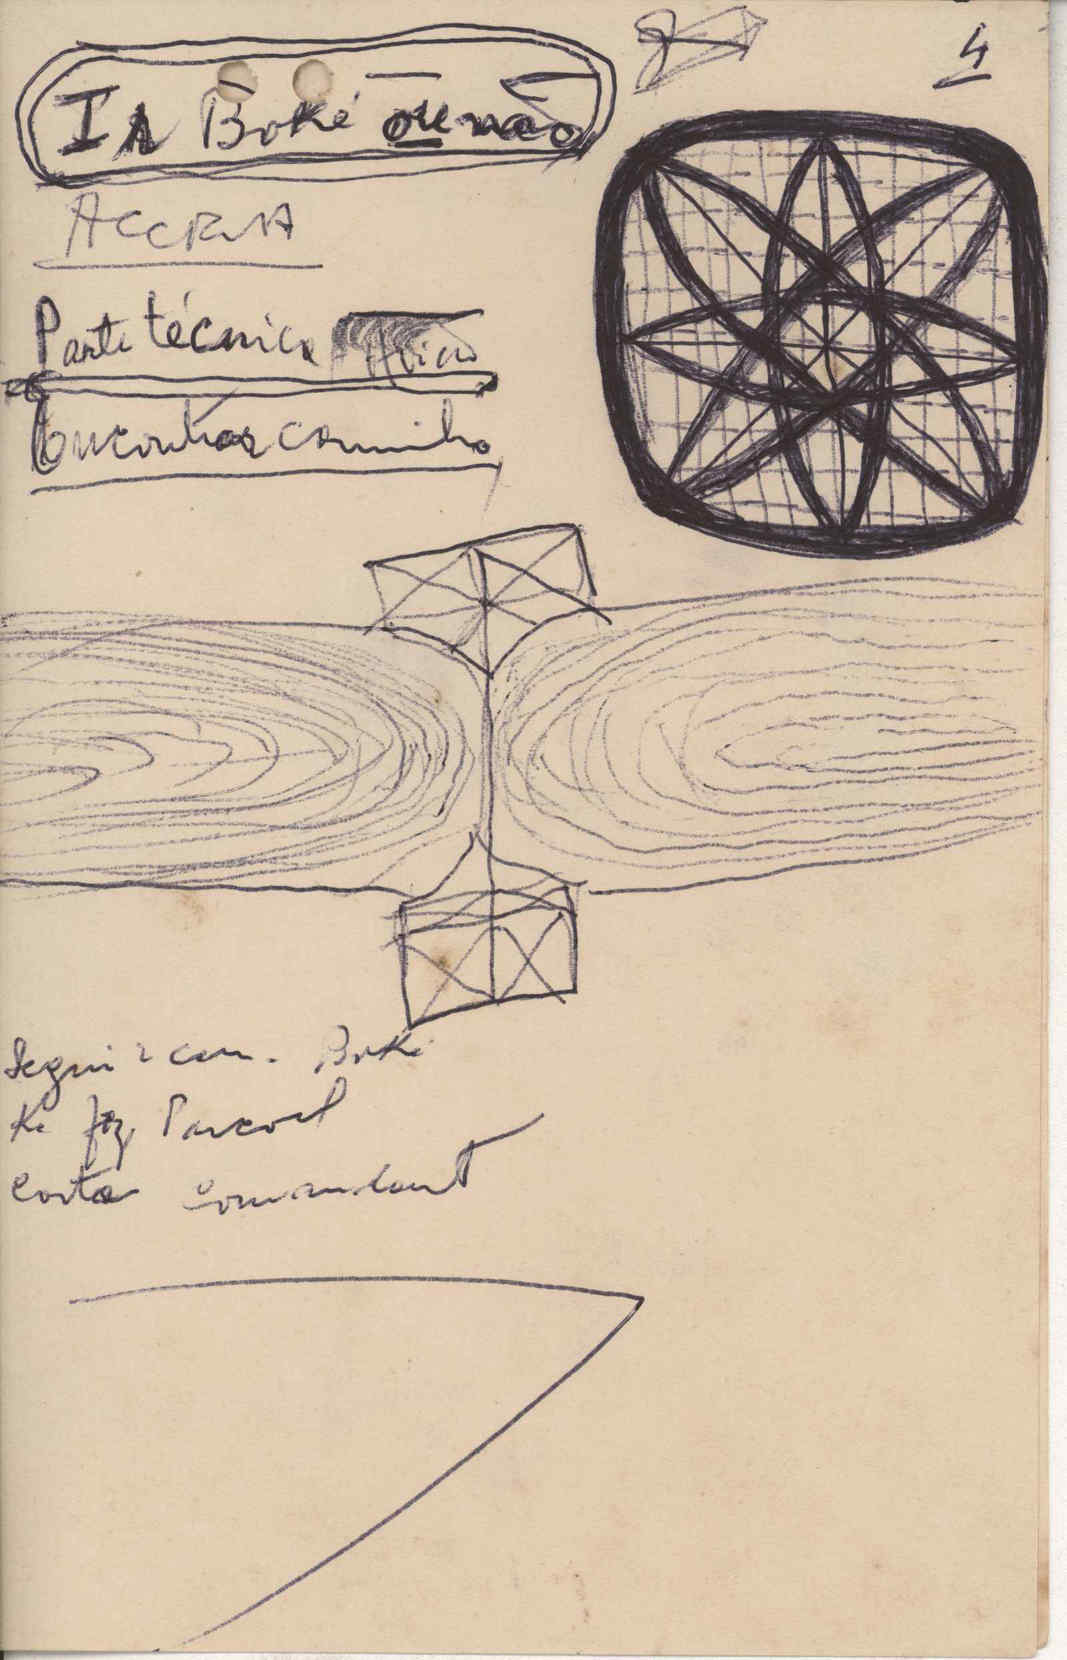 4
Ir Boké ou não
ACCRA
Parte técnica
Encontrar caminho
Seguir com. Boké
Ke faz Pascoal
Costa comandant